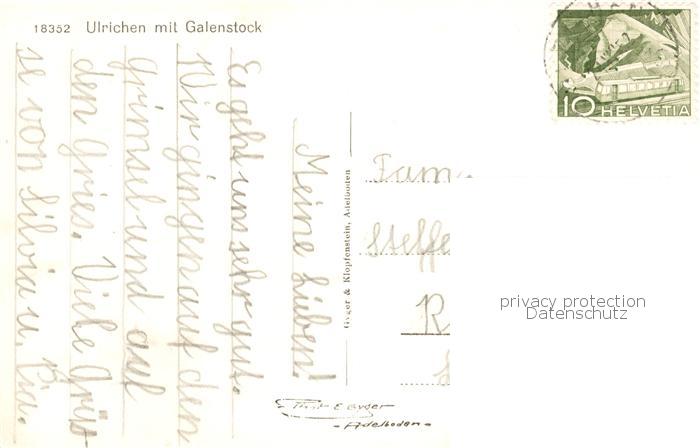 18352 Ulrichen mit Galenstock
Meine Lieben!
Es geht uns sehr gut.
Wir gingen auf den
Grimsel und auf
den Gries. Viele Grüs
se von Silvia u.
Gyger & Klopfenstein, Adelboden
Fam
Steffe
R
Phot E Gyger
-Adelboden-
10 HELVETIA
privacy protection
Datenschutz